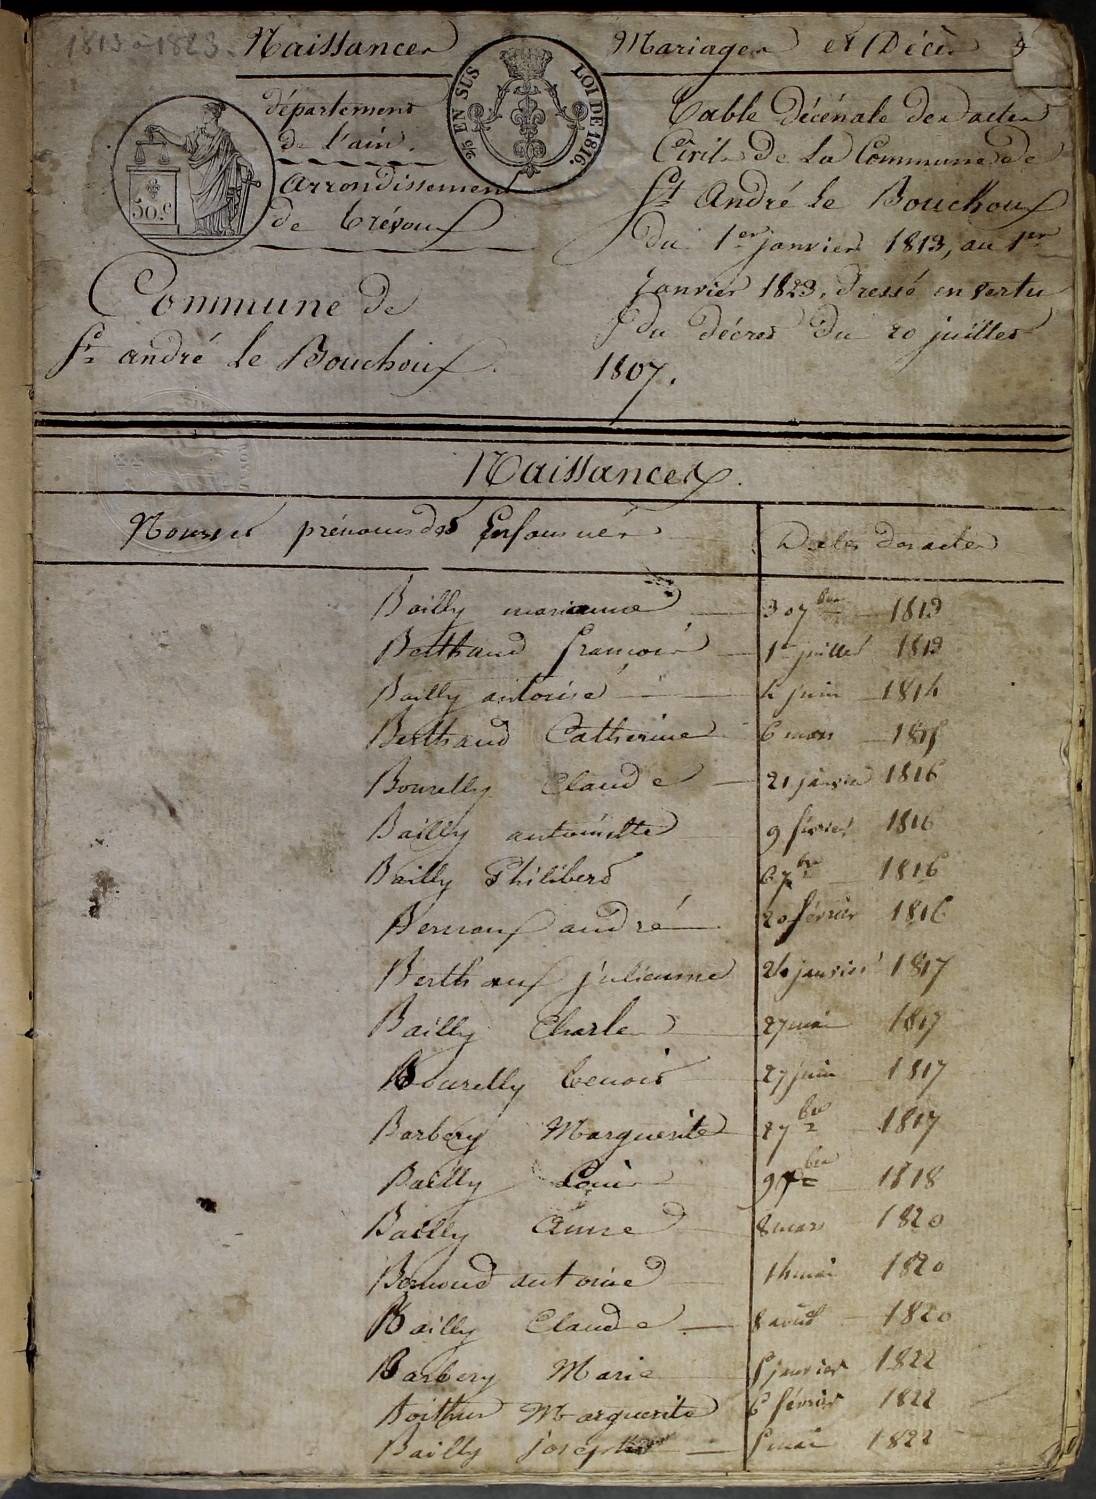 1813 à 1823. Naissances Mariages et Décès
25 EN SUS LOI DE 1816.
50.c
département
de l'ain.
arrondissement
de trévoux
Commune de
St andré le Bouchoux.
Table décénale des actes
Civils de la Commune de
St André le Bouchoux
du 1er janvier 1813, au 1er
Janvier 1823, dressé en vertu
du décret du 20 juillet
1807.
Naissances.
Noms et prénoms des Enfans nés Dates des actes
Bailly marianne 30 7bre 1813
Berthaud françois 1er juillet 1813
Bailly antoine 4 juin 1814
Berthaud Catherine 6 mars 1815
Bourelly Claude 21 janvier 1816
Bailly antoinette 9 février 1816
Bailly Philibert 6 7bre 1816
andré 20 février 1816
Berthaux julienne 24 janvier 1817
Bailly Charles 27 mai 1817
Bourelly benoit 27 juin 1817
Barbery Marguerite 1817
Bailly Louis 1818
Bailly Anne 8 mars 1820
antoine 14 mai 1820
Bailly Claude 8 août 1820
Barbery Marie 5 janvier 1822
Marguerite 6 février 1822
Bailly joseph 5 mai 1822